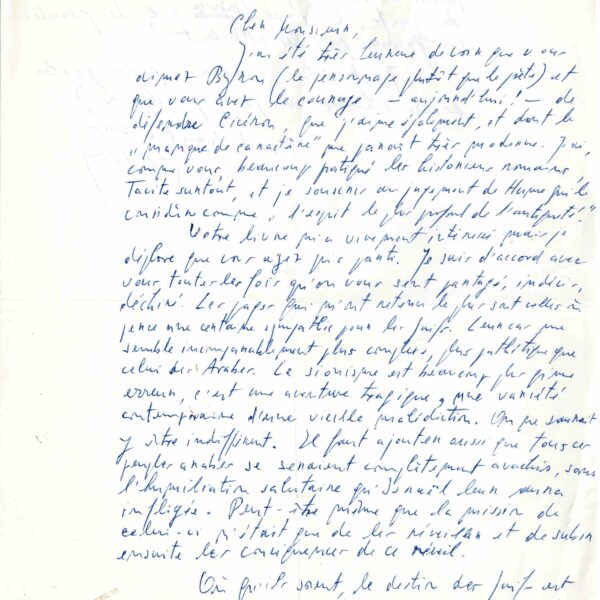 Cher Monsieur,
J'ai été très heureux de voir que vous
aimez Byron (le personnage plutôt que le poète) et
que vous avez le courage – aujourd'hui! – de
défendre Cicéron, que j'aime également, et dont le
"manque de caractère" me paraît très moderne. J'ai,
comme vous, beaucoup pratiqué les historiens romains,
Tacite surtout, et je souscris au jugement de Hume qui le
considère comme "l'esprit le plus profond de l'antiquité".
Votre livre m'a vivement intéressé mais je
déplore que vous ayez pris parti. Je suis d'accord avec
vous, toutes les fois qu'on vous sent partagé, indécis,
déchiré. Les pages qui m'ont retenu le plus sont celles où
perce une certaine sympathie pour les Juifs. Leur cas me
semble incomparablement plus complexe, plus pathétique que
celui des Arabes. Le sionisme est beaucoup plus qu'une
erreur, c'est une aventure tragique, une variété
contemporaine d'une vieille malédiction. On ne saurait
y être indifférent. Il faut ajouter aussi que tous ces
peuples arabes se seraient complètement avachis, sans
l'humiliation salutaire qu'Israël leur aura
infligée. Peut-être même que la mission de
celui-ci n'était que de les réveiller et de subir
ensuite les conséquences de ce réveil.
Où qu'ils soient, le destin des Juifs est